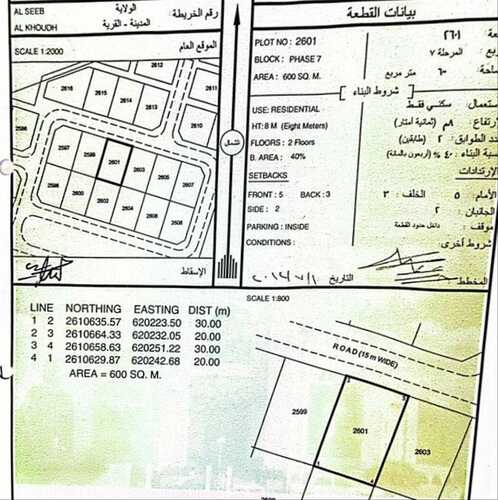 AL SEEB
الولاية
رقم الخريطة
AL KHOUDH
المدينة - القرية
SCALE 1:2000
الموقع العام
2616
2615
2614
2613
2612
2610
2597
2599
2601
2603
2605
2607
2598
2600
2602
2604
2606
2608
الإسقاط
شمال
بيانات القطعة
PLOT NO : 2601
٢٦٠١
BLOCK : PHASE 7
المرحلة ٧
AREA : 600 SQ. M.
٦٠٠ متر مربع
شروط البناء
USE: RESIDENTIAL
استعمال: سكني فقط
HT: 8 M (Eight Meters)
٨م (ثمانية أمتار)
FLOORS : 2 Floors
الطوابق : ٢ (طابقين)
B. AREA : 40%
نسبة البناء : ٤٠٪ (أربعون بالمائة)
SETBACKS
الإرتدادات
FRONT : 5 BACK : 3
الأمام : ٥ الخلف : ٣
SIDE : 2
الجانبان : ٢
PARKING : INSIDE
موقف : داخل حدود القطعة
CONDITIONS :
شروط أخرى :
التاريخ
المخطط :
LINE NORTHING EASTING DIST (m)
1 2 2610635.57 620223.50 30.00
2 3 2610664.33 620232.05 20.00
3 4 2610658.63 620251.22 30.00
4 1 2610629.87 620242.68 20.00
AREA = 600 SQ. M.
SCALE 1:800
ROAD (15 m WIDE)
2
3
2599
2601
2603
1
4